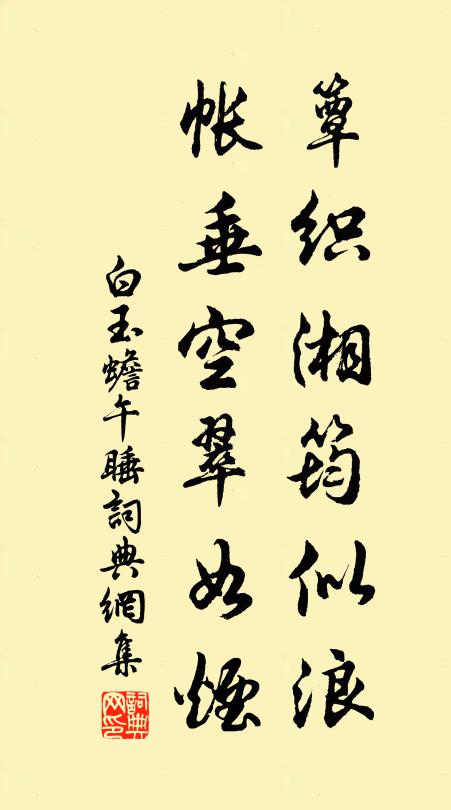 簟织湘筠似浪
帐垂空翠如烟
白玉蟾午睡詞典網集
詞典
网印